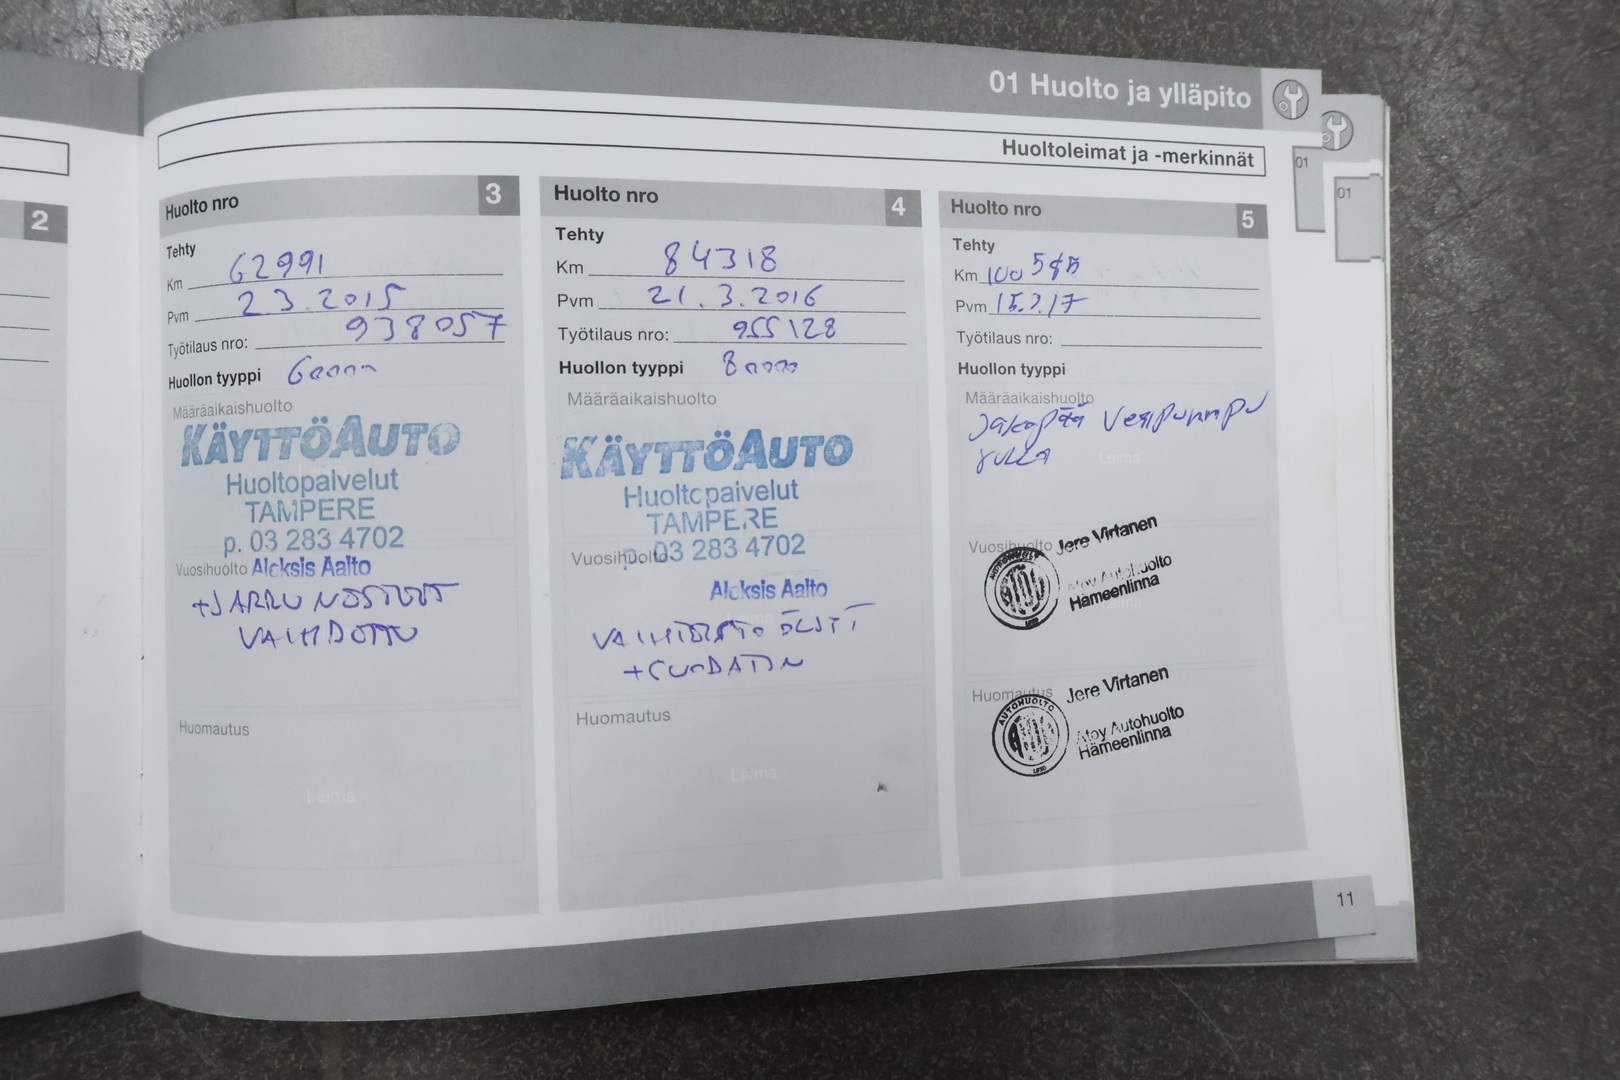 01 Huolto ja ylläpito
Huoltoleimat ja -merkinnät
01
01
2
Huolto nro 3
Tehty
Km 62991
Pvm 2.3.2015
Työtilaus nro: 938057
Huollon tyyppi 60000
Määräaikaishuolto
KÄYTTÖAUTO
Huoltopalvelut
TAMPERE
p. 03 283 4702
Vuosihuolto Aleksis Aalto
+JARRUNESTEET
VAIHDETTU
Huomautus
Leima
Huolto nro 4
Tehty
Km 84318
Pvm 21.3.2016
Työtilaus nro: 955128
Huollon tyyppi 80000
Määräaikaishuolto
KÄYTTÖAUTO
Huoltopalvelut
TAMPERE
p. 03 283 4702
Vuosihuolto
Aleksis Aalto
VAIHTEISTO ÖLJYT
+SUODATIN
Huomautus
Leima
Huolto nro 5
Tehty
Km 100
Pvm
Työtilaus nro:
Huollon tyyppi
Määräaikaishuolto
Jakopää Vesipumppu
Leima
Vuosihuolto Jere Virtanen
Atoy Autohuolto
Hämeenlinna
Leima
Huomautus Jere Virtanen
AUTOHUOLTO
Atoy Autohuolto
Hämeenlinna
11